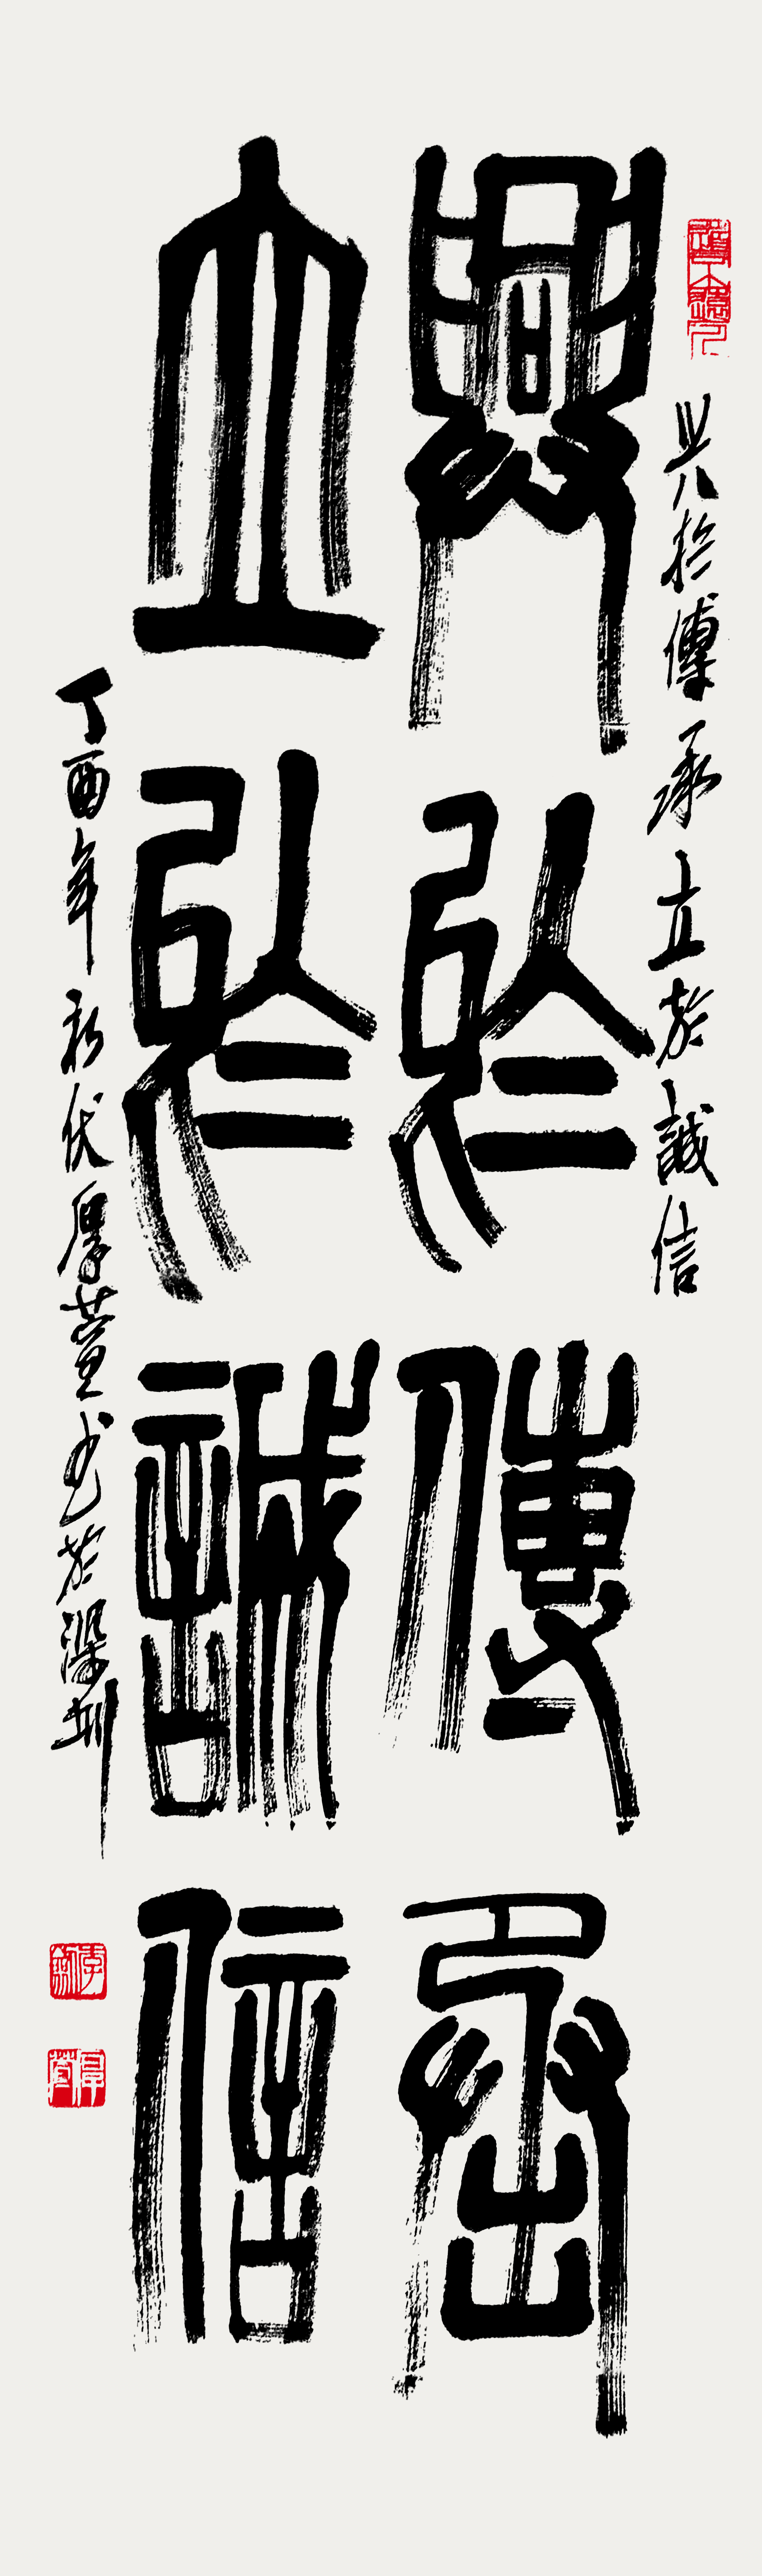 兴於傳承立於誠信
興於傳承
立於誠信
丁酉年初伏厚萱書於深圳